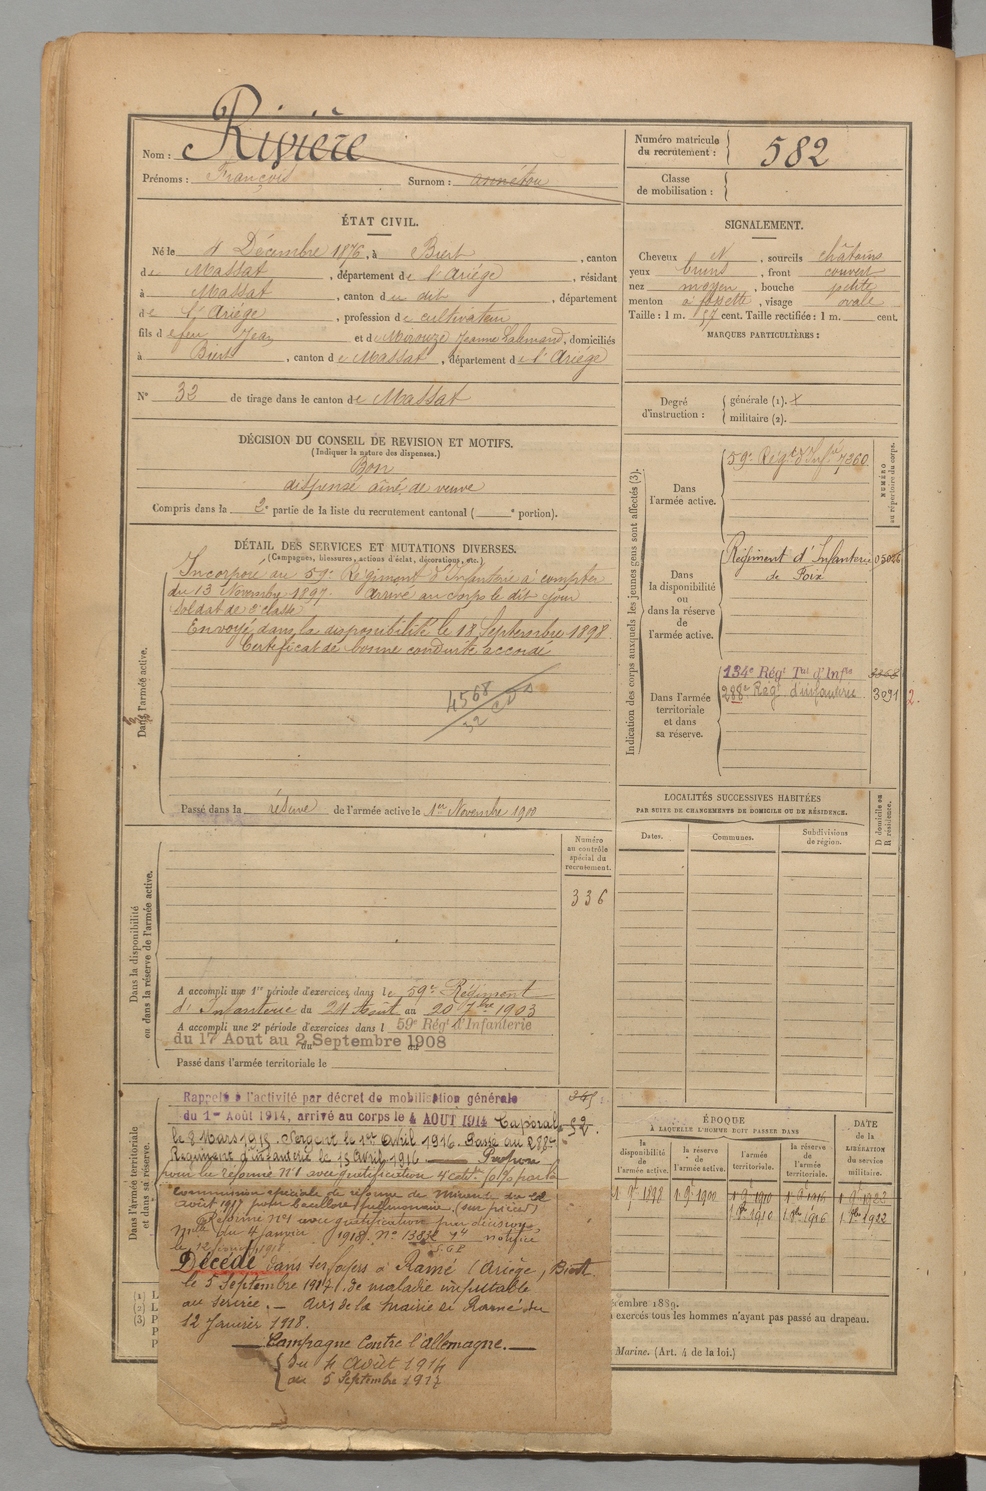 Nom : Rivière
Prénoms : François Surnom : annéton
Numéro matricule du recrutement : 582
Classe de mobilisation :
ÉTAT CIVIL.
Né le 4 Décembre 1876, à Biert, canton
de Massat, département de l'Ariège, résidant
à Massat, canton du dit, département
de l'Ariège, profession de cultivateur
fils de feu Jean et de Mirouze Jeanne, domiciliés
à Biert, canton de Massat, département de l'Ariège
N° 32 de tirage dans le canton de Massat
SIGNALEMENT.
Cheveux N, sourcils châtains
yeux bruns, front couvert
nez moyen, bouche petite
menton à fossette, visage ovale
Taille : 1 m. 57 cent. Taille rectifiée : 1 m. cent.
MARQUES PARTICULIÈRES :
Degré d'instruction : générale (1). X
militaire (2).
DÉCISION DU CONSEIL DE REVISION ET MOTIFS.
(Indiquer la nature des dispenses.)
Bon
dispensé aîné de veuve
Compris dans la 2e partie de la liste du recrutement cantonal ( e portion).
DÉTAIL DES SERVICES ET MUTATIONS DIVERSES.
(Campagnes, blessures, actions d'éclat, décorations, etc.)
Dans l'armée active.
Incorporé au 59e Régiment d'Infanterie à compter
du 13 Novembre 1897. Arrivé au corps le dit jour
Soldat de 2e classe
Envoyé dans la disponibilité le 18 Septembre 1898
Certificat de bonne conduite accordé
4568
Passé dans la réserve de l'armée active le 1er Novembre 1900
Indication des corps auxquels les jeunes gens sont affectés (3).
NUMÉRO au répertoire du corps.
Dans l'armée active.
59e Régt d'Infie 7360
Dans la disponibilité ou dans la réserve de l'armée active.
Régiment d'Infanterie
de Foix
Dans l'armée territoriale et dans sa réserve.
134e Régt Tal d'Infie
288e Régt d'infanterie 3091
2.
LOCALITÉS SUCCESSIVES HABITÉES
PAR SUITE DE CHANGEMENTS DE DOMICILE OU DE RÉSIDENCE.
Dates. Communes. Subdivisions de région.
D domicile ou R résidence.
Dans la disponibilité ou dans la réserve de l'armée active.
Numéro au contrôle spécial du recrutement.
336
A accompli une 1re période d'exercices dans le 59e Régiment
d'Infanterie du 24 Août au 20 7bre 1903
A accompli une 2e période d'exercices dans l 59e Régt d'Infanterie
du 17 Aout au 2 Septembre 1908
Passé dans l'armée territoriale le
Dans l'armée territoriale et dans sa réserve.
Rappelé à l'activité par décret de mobilisation générale
du 1er Août 1914, arrivé au corps le 4 AOUT 1914 Caporal
le 8 Mars 1915. Sergent le 1er Avril 1916. Passé au 288e
Régiment d'infanterie le 15 Avril 1916 Proposé
pour la réforme N°1 avec gratification par la
Commission spéciale de réforme de Mirande du 22
août 1917 pour bacillose pulmonaire.
Réformé N°1 avec gratification par décision
Mlle du 4 janvier 1918. notifiée
le 12
Décédé dans ses foyers à Ramé l'Ariège, Biert
le 5 Septembre 1917, de maladie imputable
au service. — Avis de la Mairie de Ramé du
12 Janvier 1918.
Campagne Contre l'allemagne.
du 4 Août 1914
au 5 Septembre 1917
ÉPOQUE
À LAQUELLE L'HOMME DOIT PASSER DANS
la disponibilité de l'armée active. la réserve de l'armée active. l'armée territoriale. la réserve de l'armée territoriale.
DATE de la LIBÉRATION du service militaire.
1 9e 1898 1 9e 1900 1 9e 1910 1 9e 1916 1 9e 1922
1 8bre 1910 1 8bre 1916 1 8bre 1922
(1) L
(2) L
(3) P
P
P
écembre 1889.
exercés tous les hommes n'ayant pas passé au drapeau.
Marine. (Art. 4 de la loi.)